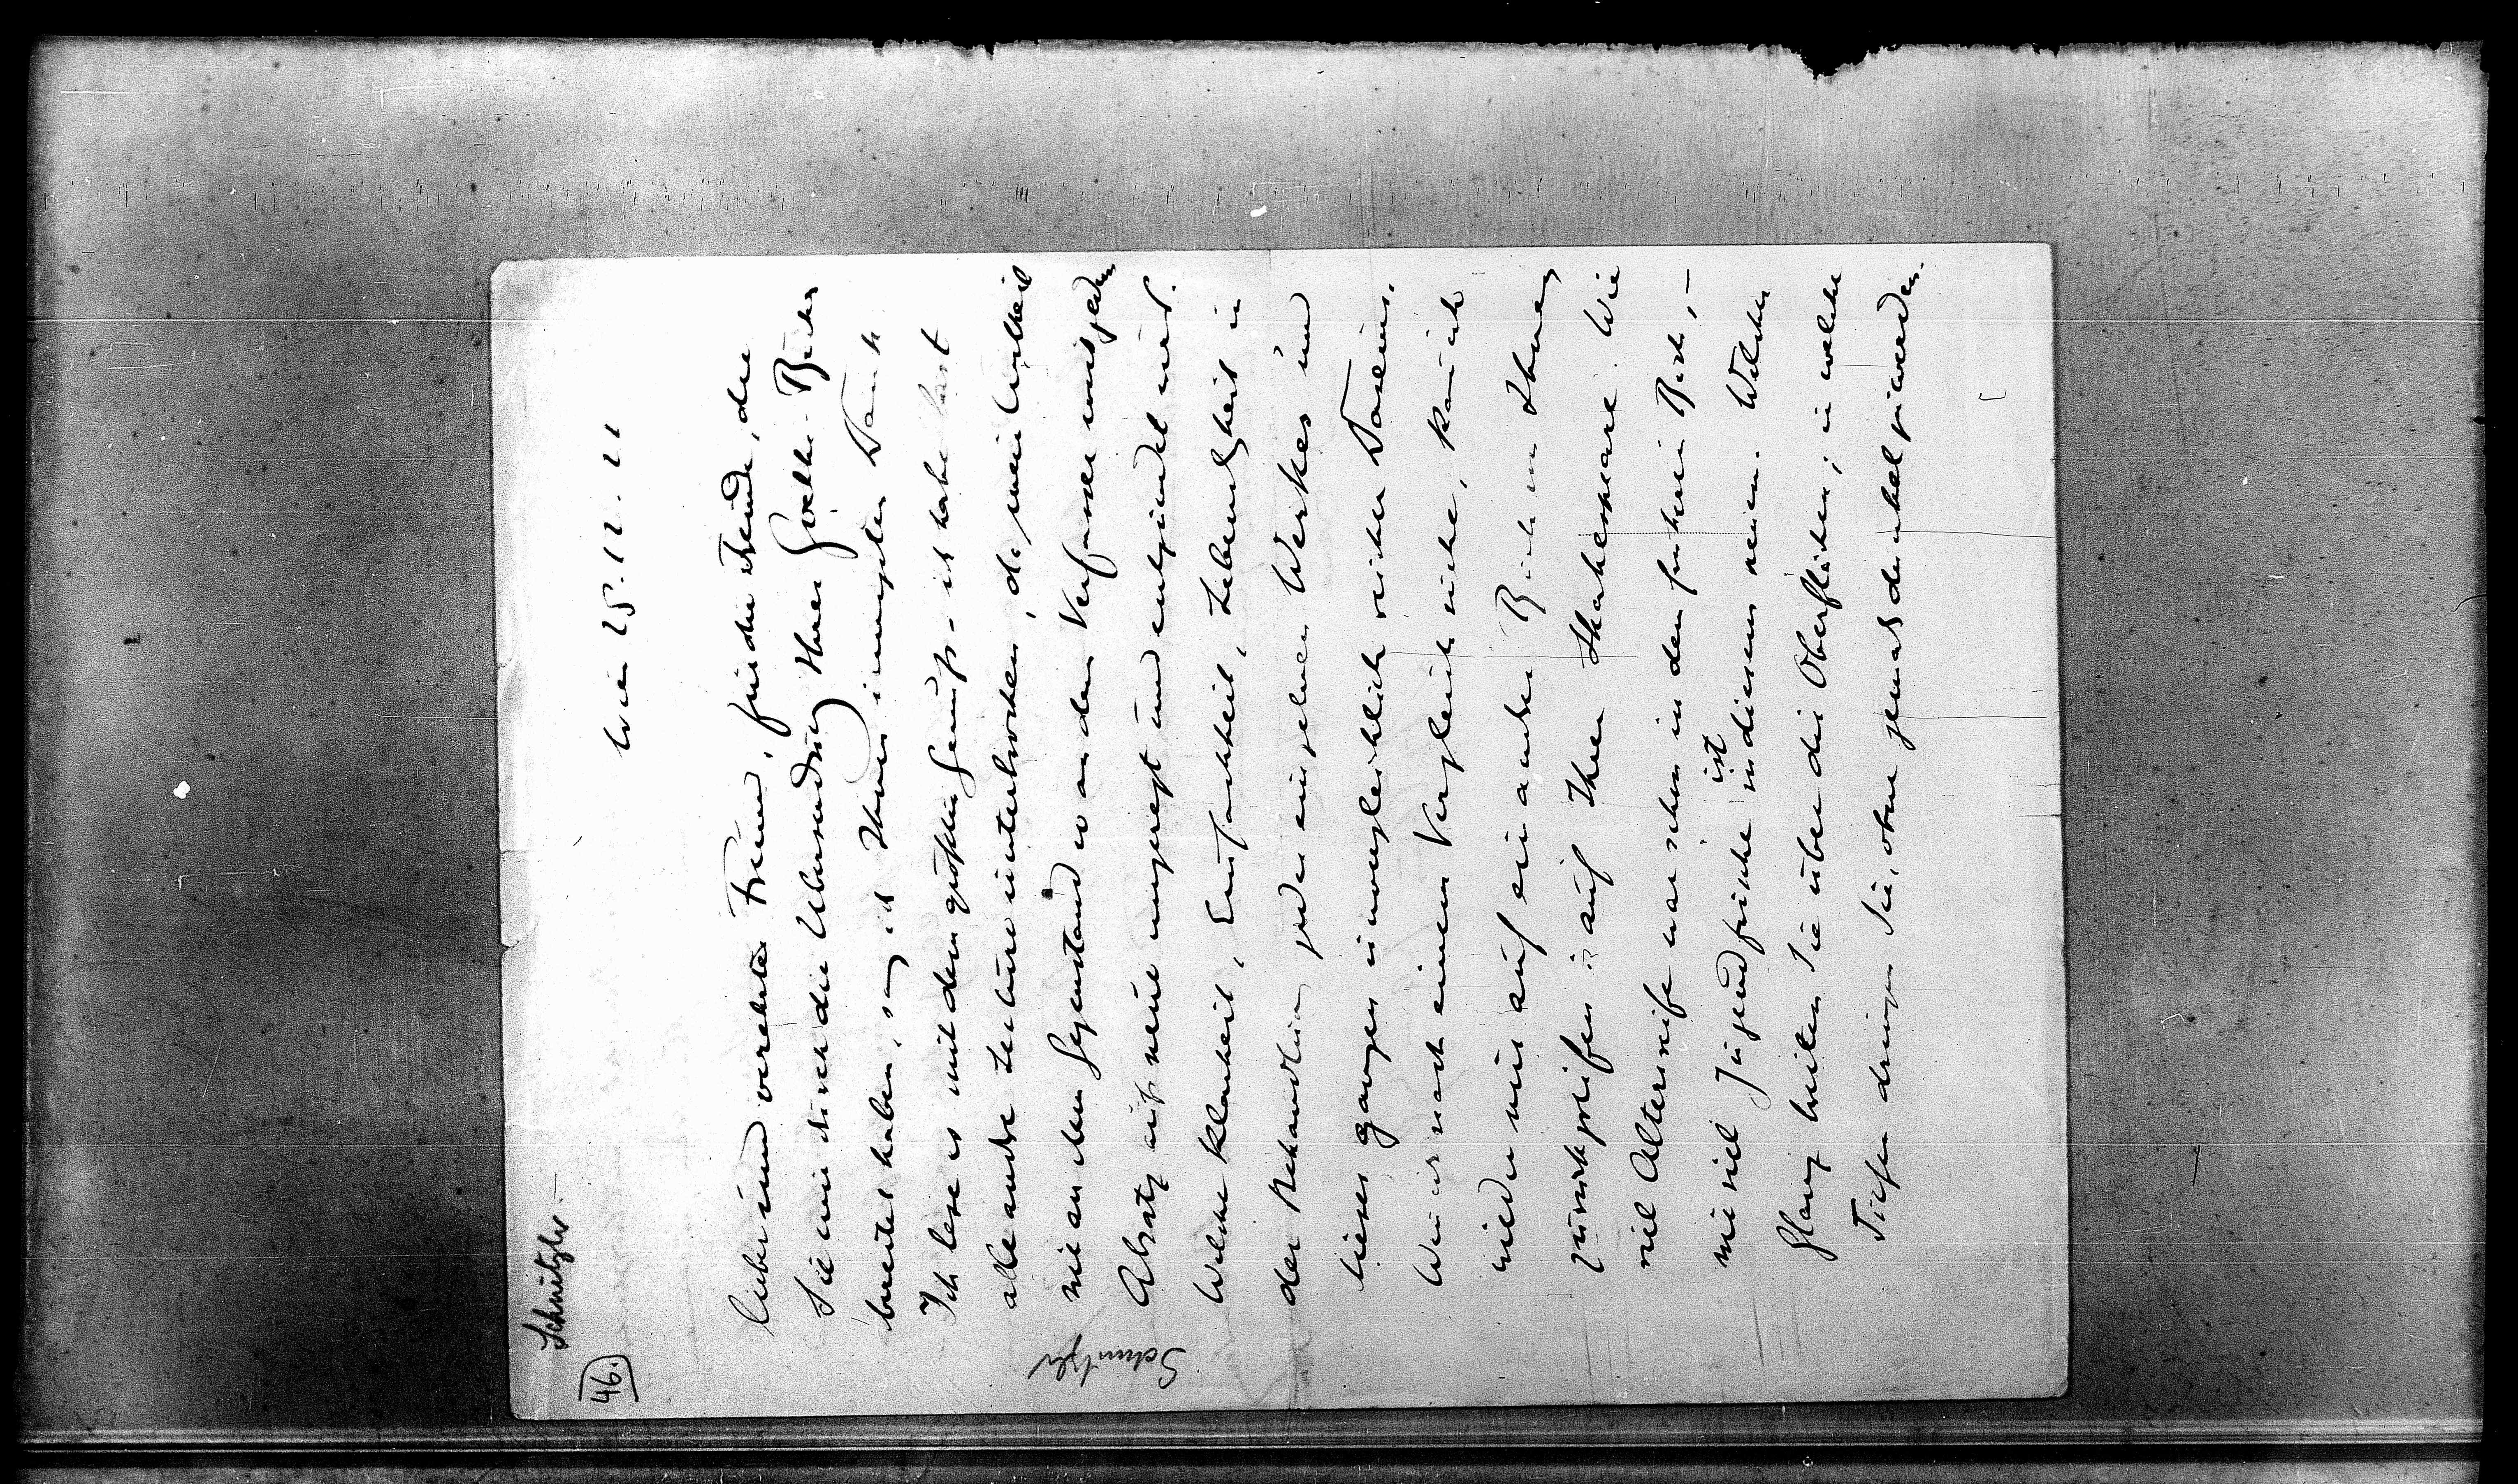 Schnitzler
46.
Wien 25. 12. 22
lieber und verehrter Freund, für die Freude, die
Sie mir durch die Übersendung Ihres Goethe-Buches
bereitet haben, sag ich Ihnen innigsten Dank
Ich lese es mit dem größten Genuß – ich habe fast
alle andre Lectüre unterbrochen, da mein Antheil
wie an dem Gegenstand so an dem Verfasser mit jedem
Absatz aufs neue angeregt und entzündet wird.
Welche Klarheit, Einfachheit, Lebendigkeit in
der Behandlung jedes einzelnen Werkes und
dieses ganzen unvergleichlich reichen Daseins.
Wenn ich nach einem Vergleich suche, kann ich
wieder nur auf ein andres Buch von Ihnen
zurückgreifen: auf Ihren Shakespeare. Wie
viel Altersreife war schon in dem früheren Buch, –
wie viel Jugendfrische ist in diesem neuen. Welcher
Glanz breiten Sie über die Oberflächen; in welche
Tiefen dringen Sie, ohne jemals dunkel zu werden.
Schnitzler